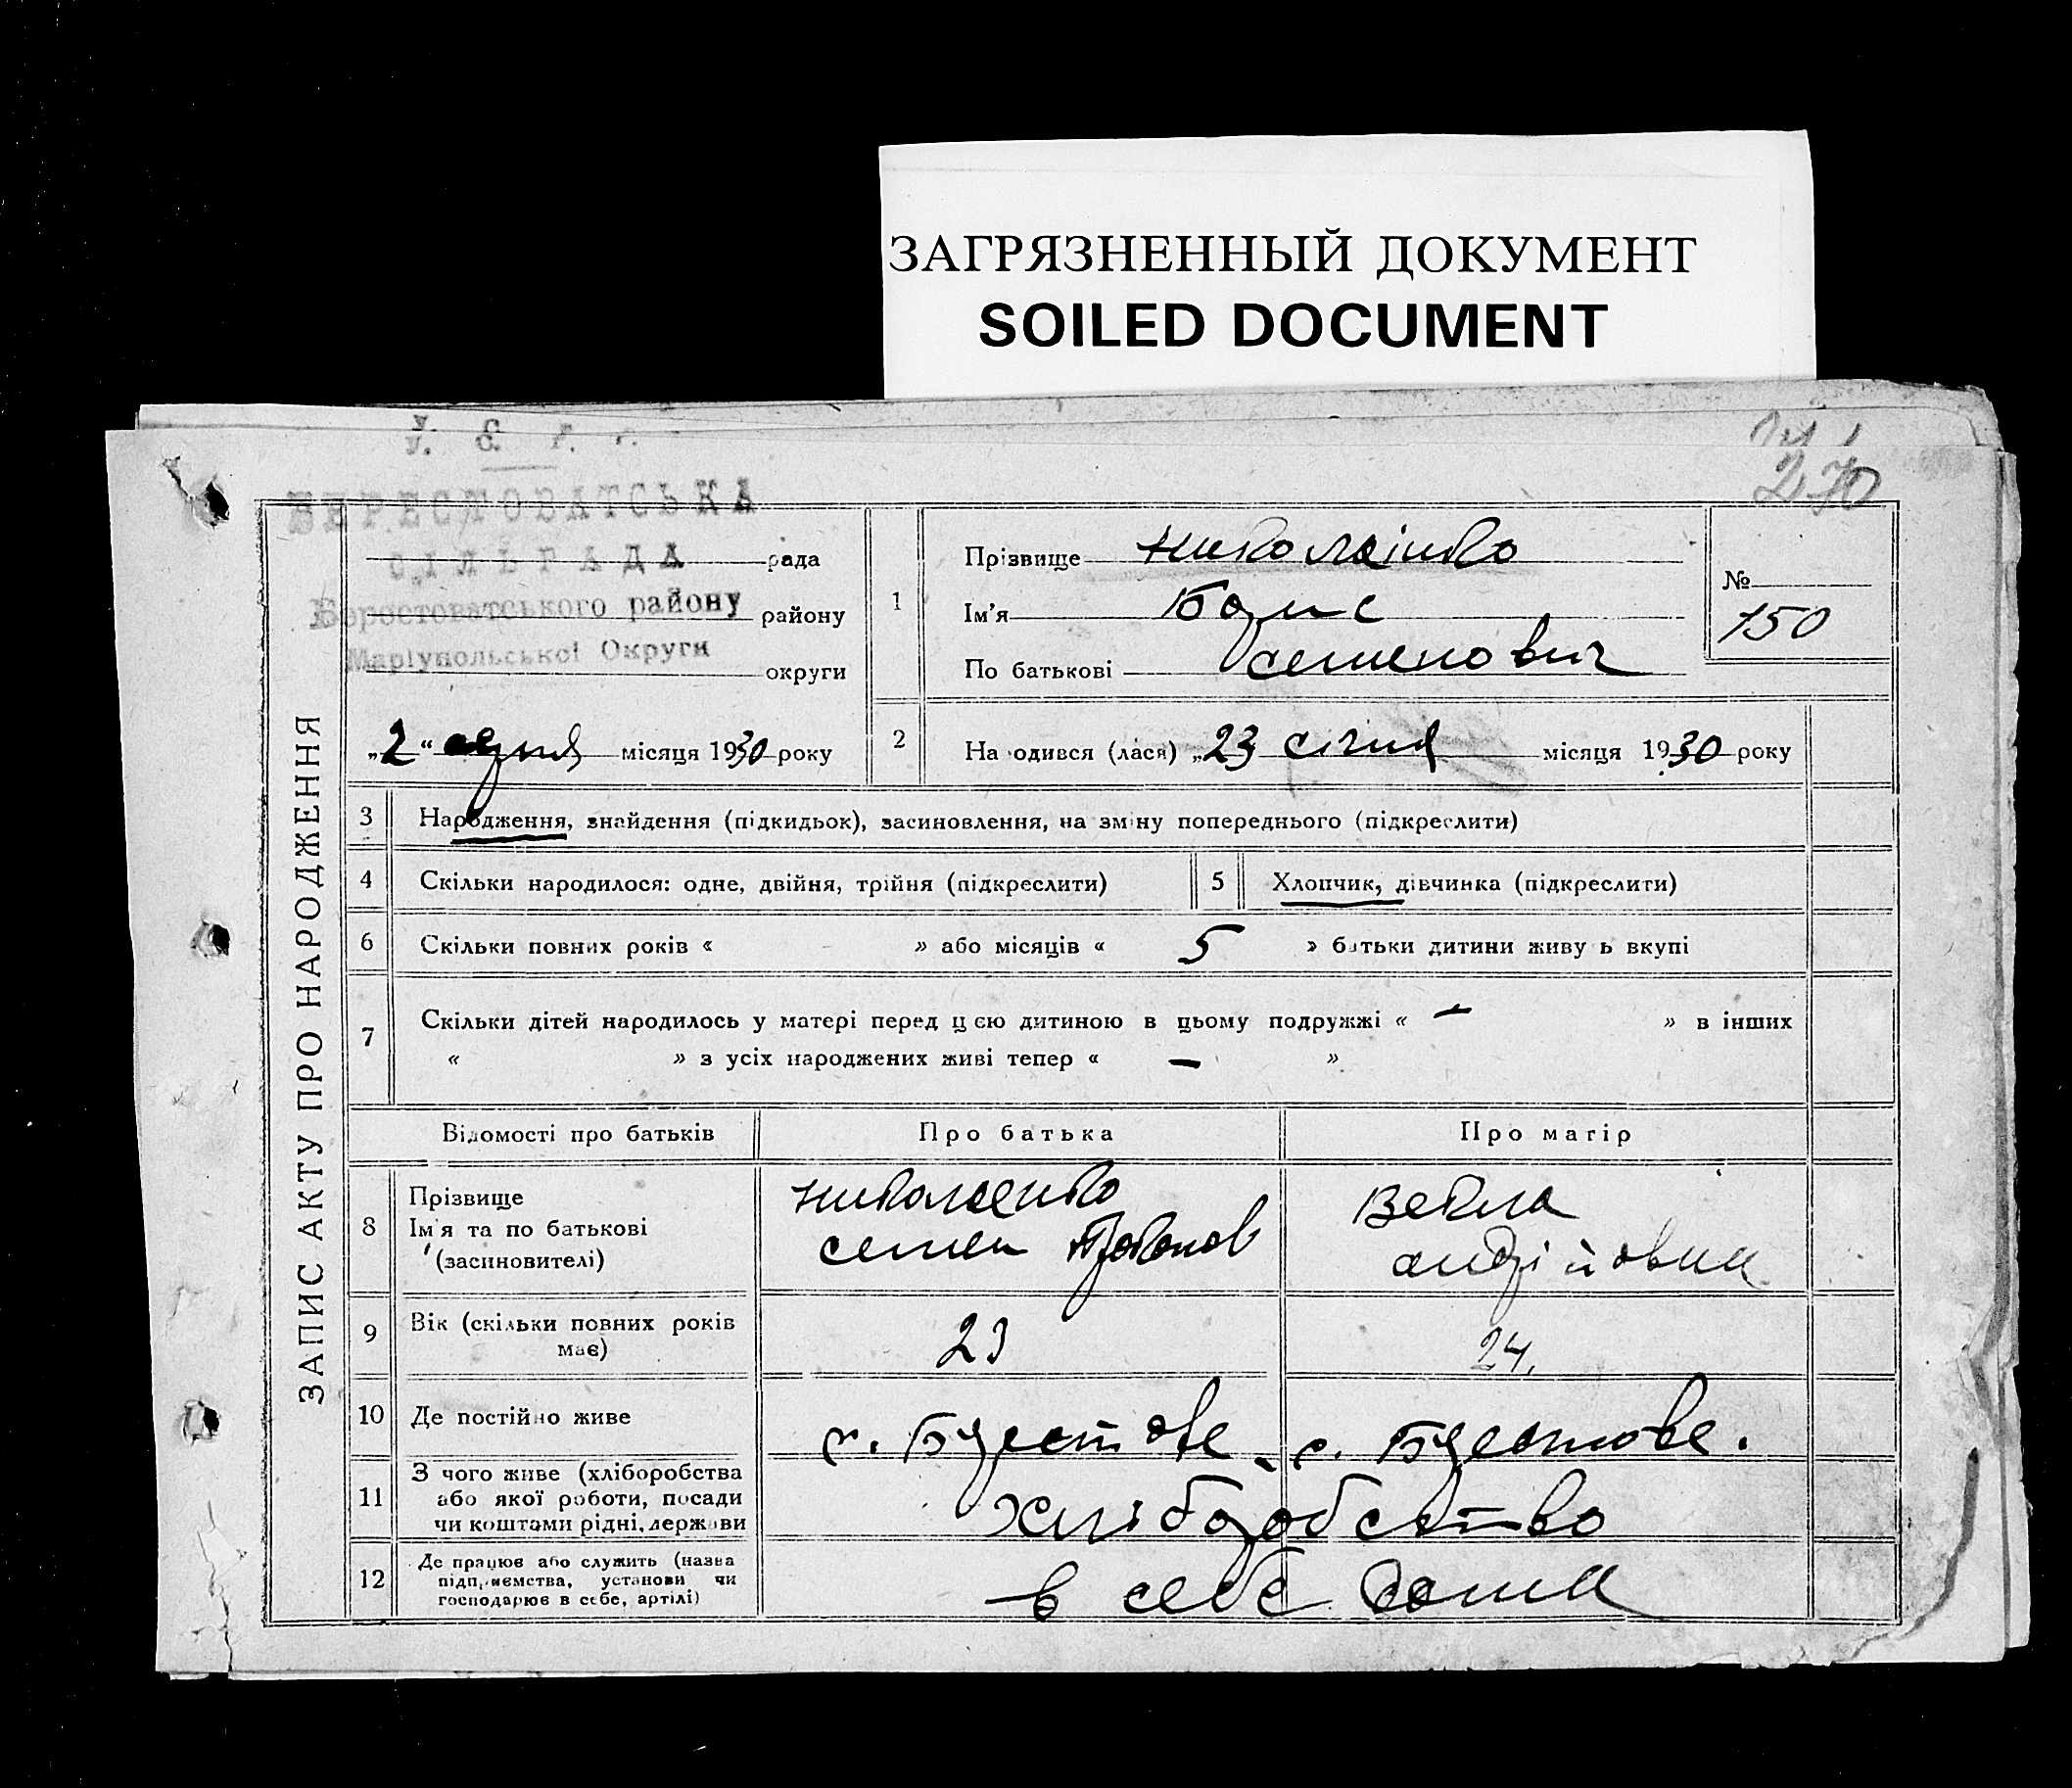 ЗАГРЯЗНЕННЫЙ ДОКУМЕНТ
SOILED DOCUMENT
270
У. С.
БЕРЕСТОВАТСЬКА
СІЛЬРАДА рада
Берестоватського району району
Маріупольської Округи округи
„2“ серпня місяця 1930 року
ЗАПИС АКТУ ПРО НАРОДЖЕННЯ
1
Прізвище Николаінко
Ім'я Борис
По батькові Семенович
№
150
2 Народився (лася) „23 січня місяця 1930 року
3 Народження, знайдення (підкидьок), засиновлення, на зміну попереднього (підкреслити)
4 Скільки народилося: одне, двійня, трійня (підкреслити)
5 Хлопчик, дівчинка (підкреслити)
6 Скільки повних років « – » або місяців « 5 » батьки дитини живуть вкупі
7 Скільки дітей народилось у матері перед цією дитиною в цьому подружжі « – » в інших
« » з усіх народжених живі тепер « – »
Відомості про батьків Про батька Про матір
8 Прізвище
Ім'я та по батькові
(засиновителі)
Николаенко
Семен
андрійовна
9 Вік (скільки повних років
має)
23
24.
10 Де постійно живе с. Берестове с. Берестове.
11 З чого живе (хліборобства
або якої роботи, посади
чи коштами рідні, держави
Хліборобство
12 Де працює або служить (назва
підприємства, установи чи
господарює в себе, артілі)
в себе дома